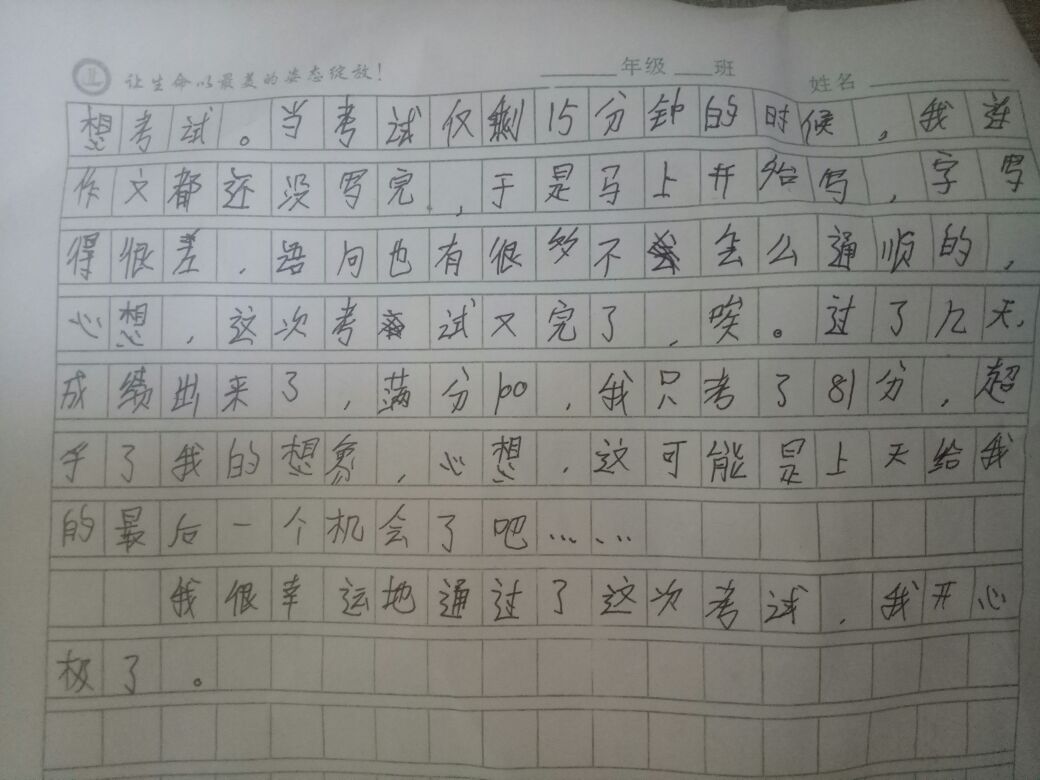 让生命以最美的姿态绽放！ ______年级 ___班 姓名
想考试。当考试仅剩15分钟的时候，我连
作文都还没写完，于是马上开始写，字写
得很差，语句也有很多不怎么通顺的，
心想，这次考试又完了，唉。过了几天，
成绩出来了，满分100，我只考了81分，超
乎了我的想象，心想，这可能是上天给我
的最后一个机会了吧……
我很幸运地通过了这次考试，我开心
极了。